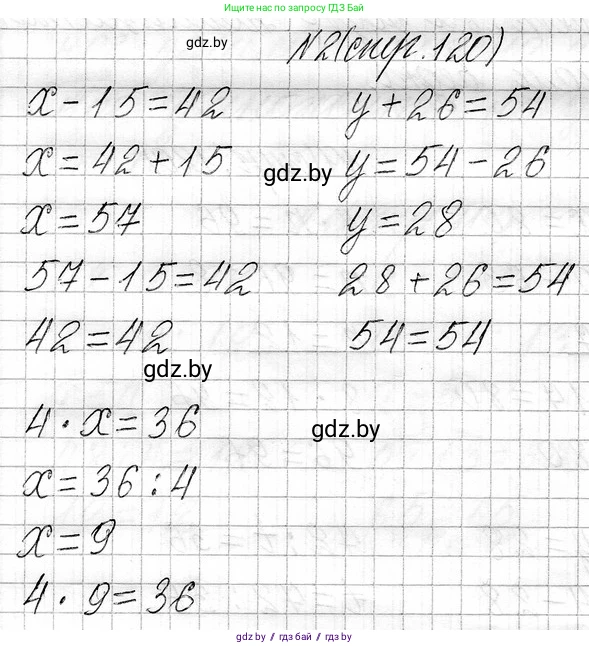 Ищите нас по запросу ГДЗ Бай
gdz.by
№2(стр.120)
x-15=42
y+26=54
x=42+15
gdz.by
y=54-26
x=57
y=28
57-15=42
28+26=54
42=42
54=54
gdz.by
4·x=36
gdz.by
x=36:4
x=9
4·9=36
gdz.by / гдз бай / gdz.by